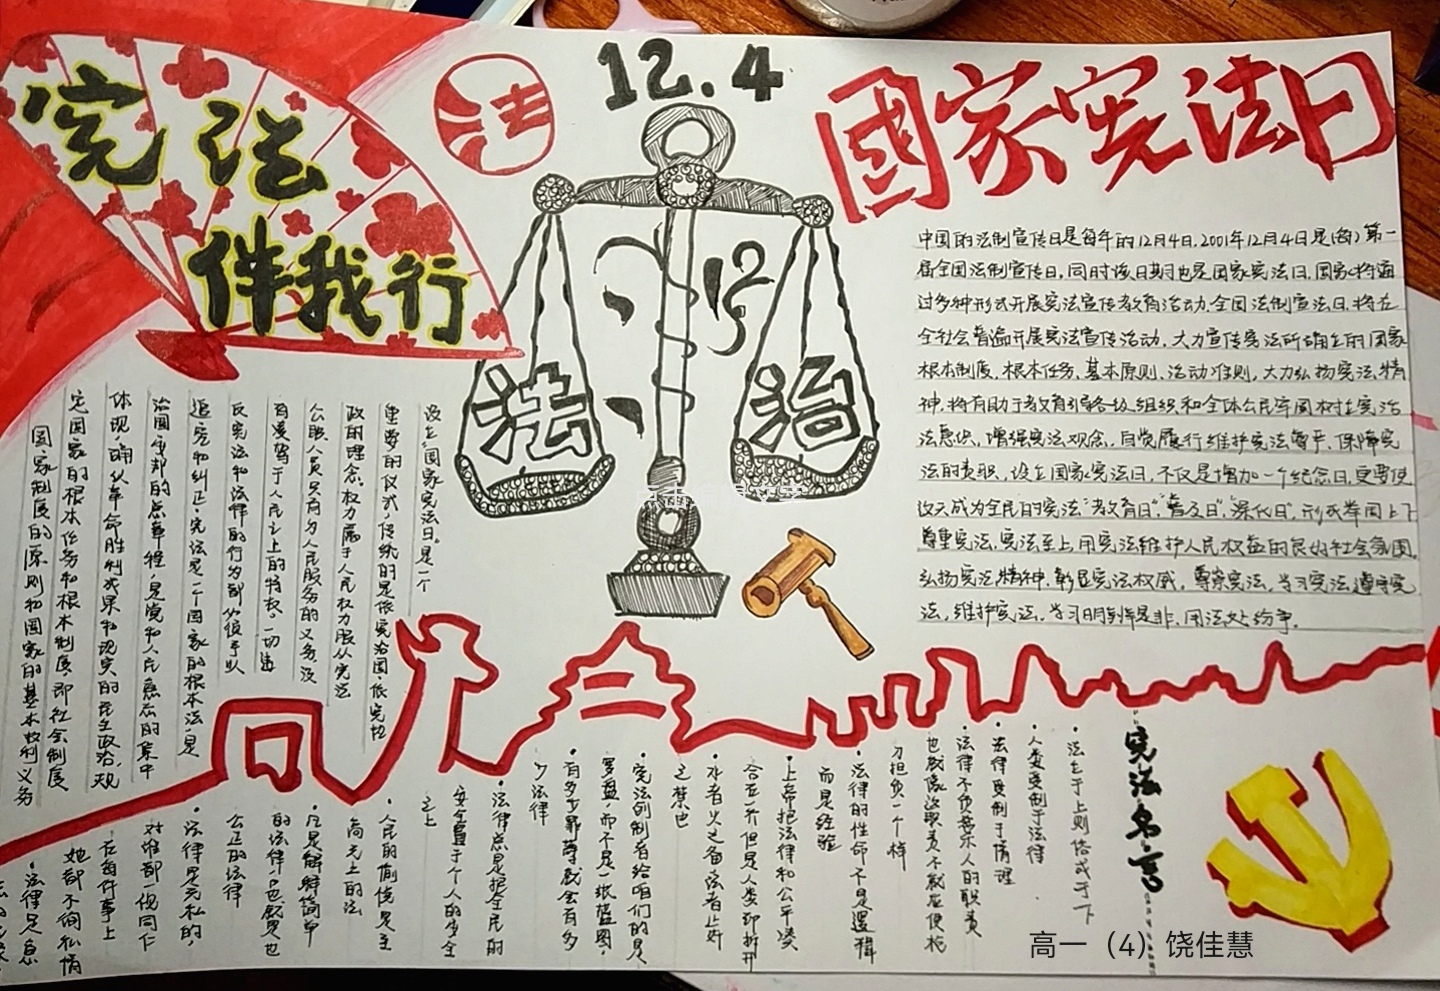 宪法
伴我行
法
12.4
國家宪法日
法治
中国的法制宣传日是每年的12月4日,2001年12月4日是(每)第一
届全国法制宣传日,同时该日期也是国家宪法日,国家将通
过多种形式开展宪法宣传教育活动.全国法制宣法日,将在
全社会普遍开展宪法宣传活动,大力宣传宪法所确立的国家
根本制度、根本任务、基本原则、活动准则,大力弘扬宪法精
神,将有助于教育引导各级组织和全体公民牢固树立宪法
法意识,增强宪法观念,自觉履行维护宪法尊严、保障宪
法的责职,设立国家宪法日,不仅是增加一个纪念日,更要使
这天成为全民的宪法“教育日”,“普及日”,“深化日”,形成举国上下
尊重宪法,宪法至上,用宪法维护人民权益的良好社会氛围.
弘扬宪法精神,彰显宪法权威,尊崇宪法,学习宪法遵守宪
法,维护宪法,学习明辨是非,用法处纷争.
设立国家宪法日。是一个
重要的仪式,传统的是依宪治国,依宪执
政的理念,权力属于人民权力服从宪法
公职人员只有为人民服务的义务,没
有凌驾于人民之上的特权,一切违
反宪法和法律的行为都必须予以
追究和纠正,宪法是一个国家的根本法,是
治国安邦的总章程,是党和人民意志的集中
体现,确认革命胜利成果和现实的民主政治,规
定国家的根本任务和根本制度,即社会制度
国家制度的原则和国家的基本权利义务
宪法名言
·法立于上则俗成于下
·人类受制于法律
法律受制于情理
·法律不负婚乐人的职责
也就像没职责不就应使权
力担负一个样
·法律的性命不是逻辑
而是经验
·上帝把法律和公平凑
合在一齐但是人类却拆开
·水者火之备法者止奸
之禁也
宪法创制者给咱们的是
罗盘,而不是一张蓝图,
·有多少罪辱就会有多
少法律
·法律总是把全民的
安全置于个人的安全
之上
·人民的愉悦是至
高无上的法
·凡是解释简单
的法律,也就是也
公正的法律
·法律是无私的,
对谁都一视同仁
在每件事上
她都不徇私情
·法律是意
高一（4）饶佳慧